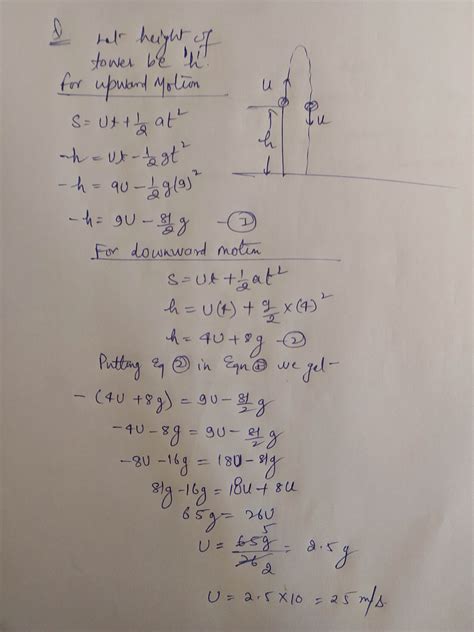 Q let height of
tower be 'h'.
For upward Motion
S = Ut + 1/2 at²
-h = Ut - 1/2 gt²
-h = 9U - 1/2 g(9)²
-h = 9U - 81/2 g —①
u
u
h
For downward motion
S = Ut + 1/2 at²
h = U(4) + g/2 × (4)²
h = 4U + 8g —②
Putting Eq ② in Eqn ① we get-
-(4U + 8g) = 9U - 81/2 g
-4U - 8g = 9U - 81/2 g
-8U - 16g = 18U - 81g
81g - 16g = 18U + 8U
65g = 26U
U = 65g/26 5/2 = 2.5g
U = 2.5 × 10 = 25 m/s.